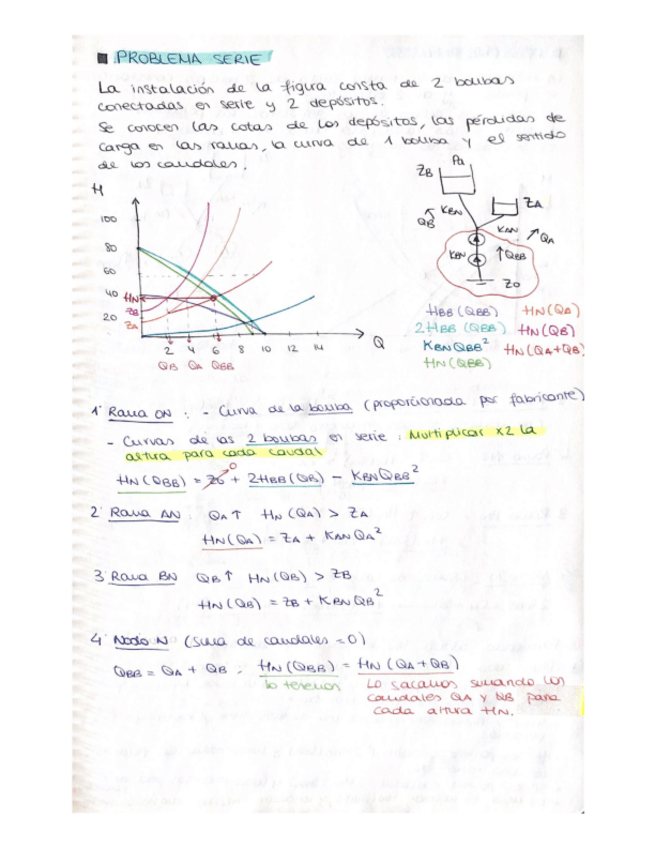 PROBLEMA SERIE
La instalación de la figura consta de 2 bombas
conectadas en serie y 2 depósitos.
Se conocen las cotas de los depósitos, las pérdidas de
carga en las ramas, la curva de 1 bomba y el sentido
de los caudales.
H
100
80
60
40
20
HN
ZB
ZA
2 4 6 8 10 12 14
Q
QB QA QBB
Pa
ZB
ZA
KBN
QB
KAN
QA
KBN
QBB
Z0
HBB (QBB) HN(QA)
2HBB (QBB) HN(QB)
KBNQBB² HN(QA+QB)
HN(QBB)
1· Rama ON : - Curva de la bomba (proporcionada por fabricante)
- Curvas de las 2 bombas en serie : Multiplicar x2 la
altura para cada caudal
HN(QBB) = Z0 + 2HBB(QB) - KBNQBB²
0
2· Rama AN : QA↑ HN(QA) > ZA
HN(QA) = ZA + KANQA²
3· Rama BN QB↑ HN(QB) > ZB
HN(QB) = ZB + KBNQB²
4· Nodo N (Suma de caudales = 0)
QBB = QA + QB : HN(QBB) = HN(QA+QB)
lo tenemos
Lo sacamos sumando los
caudales QA y QB para
cada altura HN.